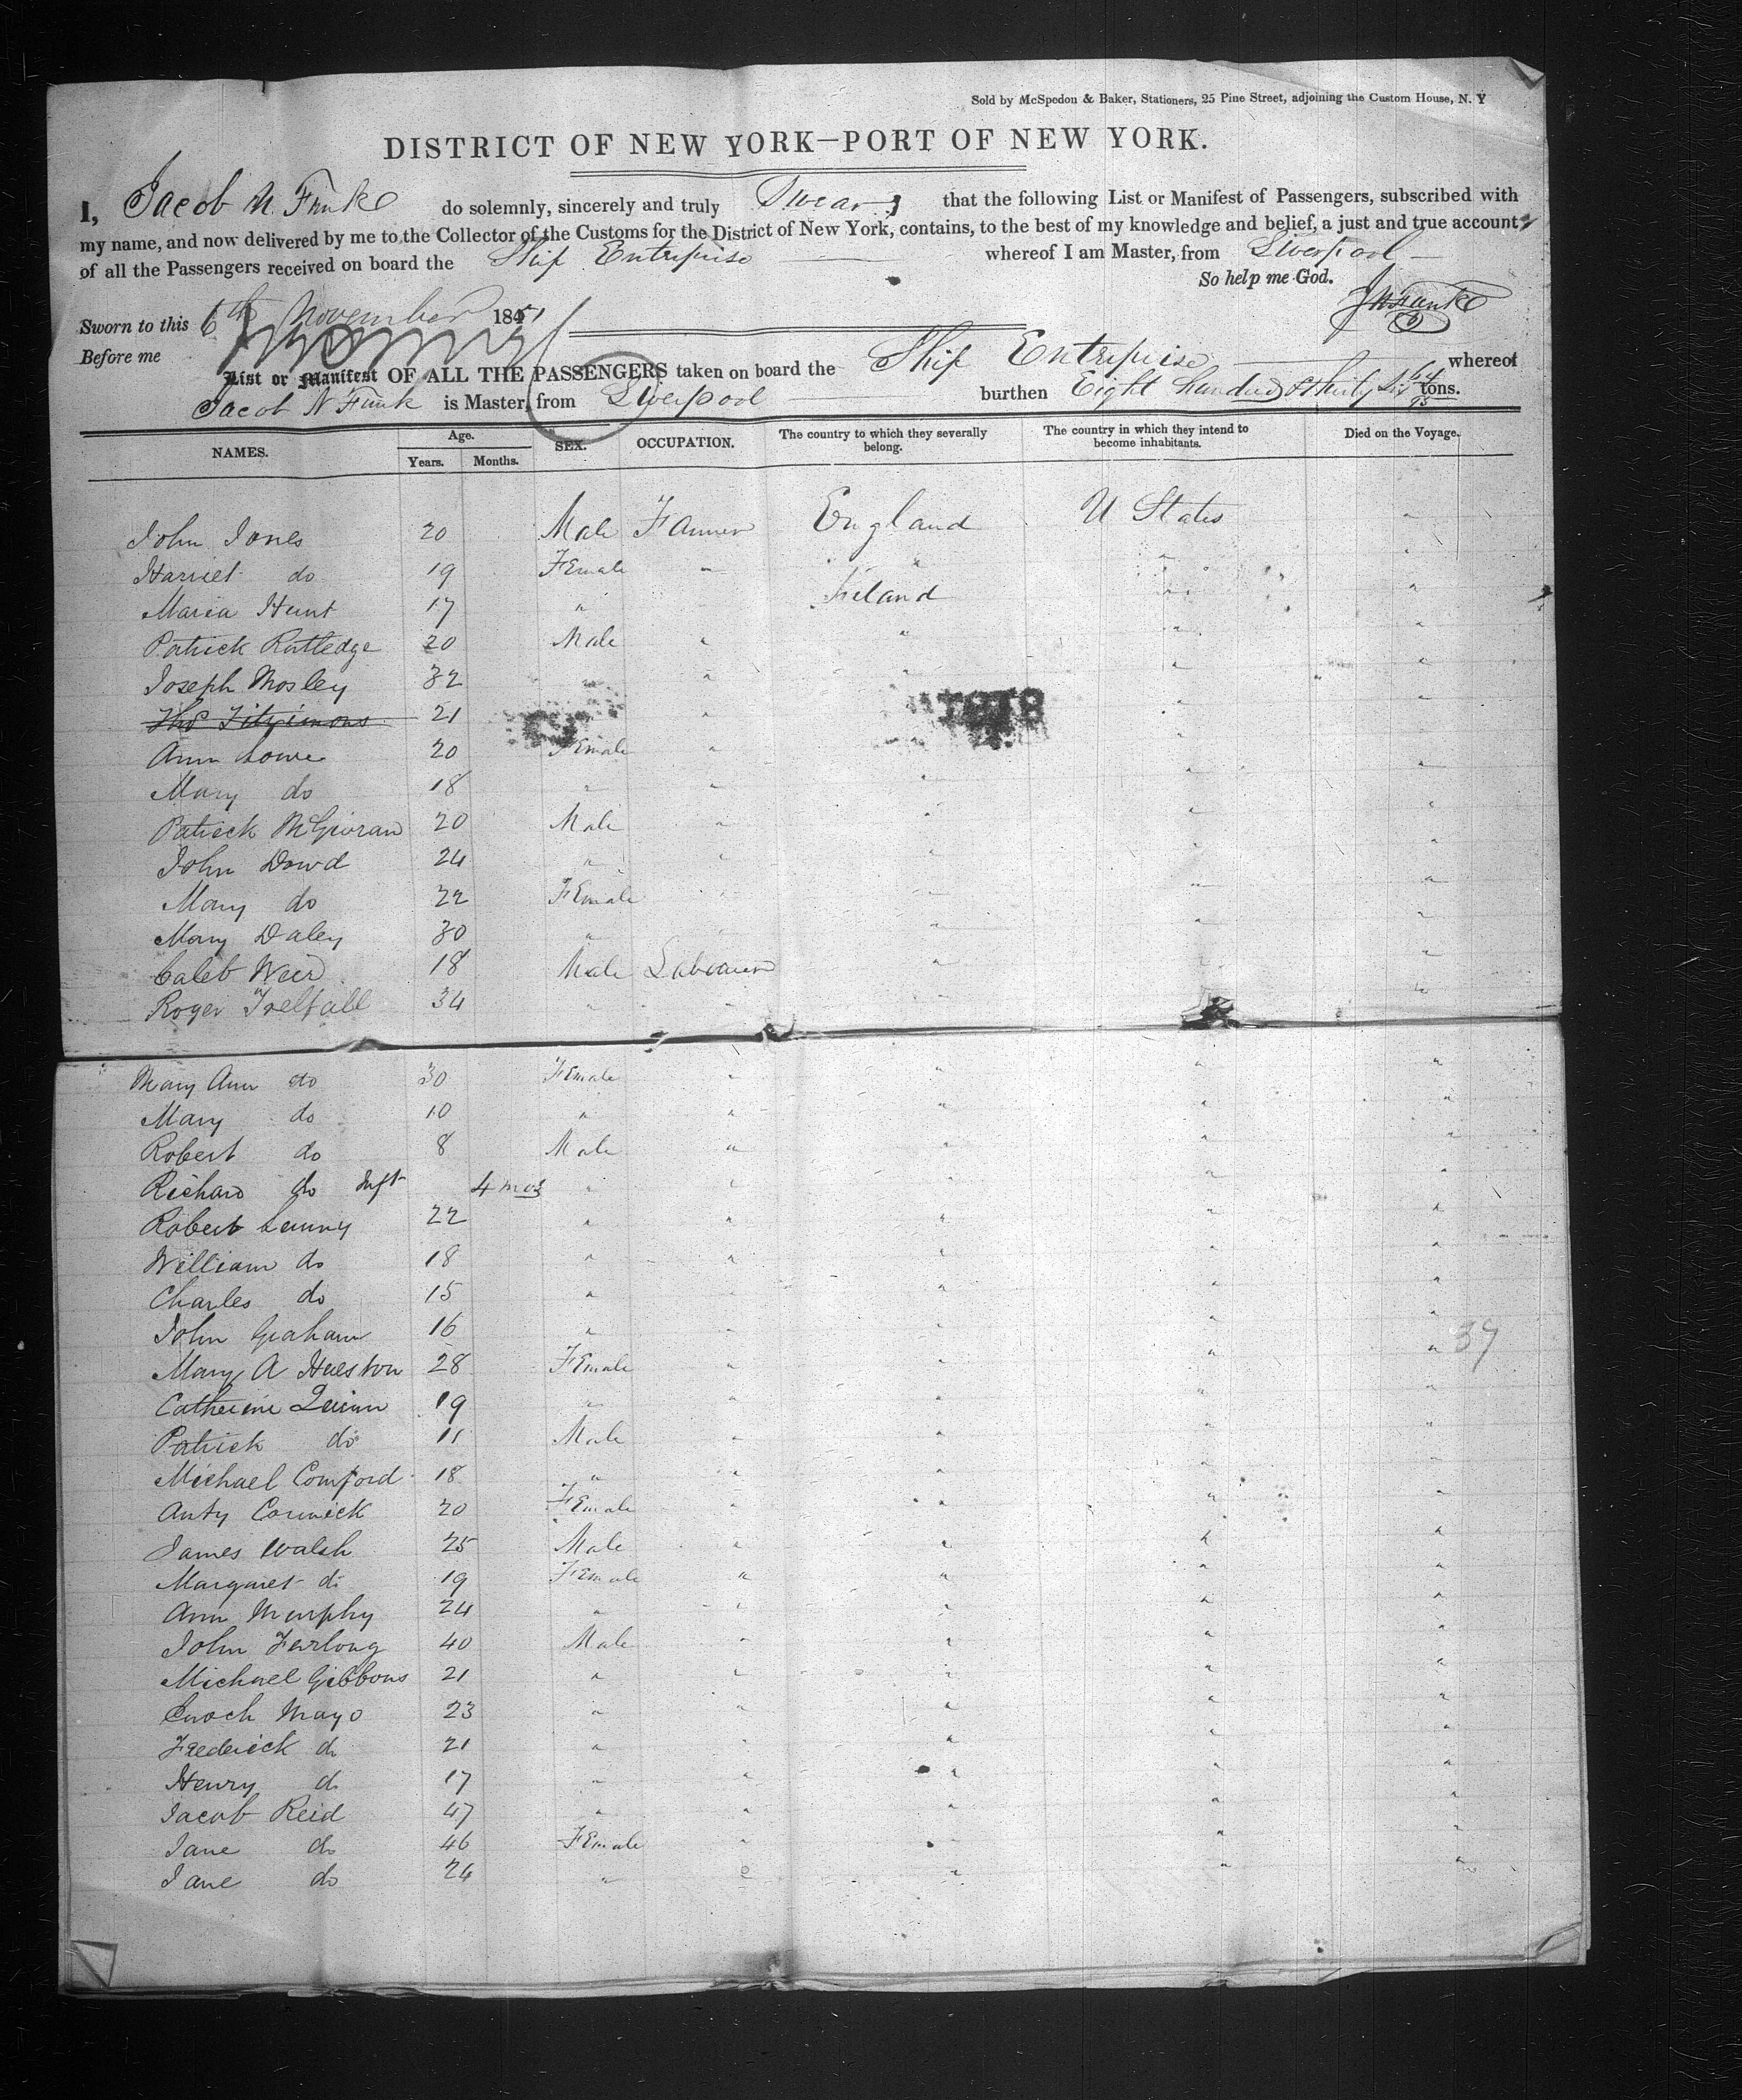 Sold by McSpedon & Baker, Stationers, 25 Pine Street, adjoining the Custom House, N. Y
DISTRICT OF NEW YORK—PORT OF NEW YORK.
I, Jacob N. Funke do solemnly, sincerely and truly Swear that the following List or Manifest of Passengers, subscribed with
my name, and now delivered by me to the Collector of the Customs for the District of New York, contains, to the best of my knowledge and belief, a just and true account
of all the Passengers received on board the Ship Enterprise whereof I am Master, from Liverpool
So help me God.
Sworn to this 6th November 1851
JNFunke
Before me
List or Manifest OF ALL THE PASSENGERS taken on board the Ship Enterprise whereof
Jacob N Funk is Master, from Liverpool burthen Eight hundred & thirty Six 64/95 tons.
NAMES. Age. Years. Months. SEX. OCCUPATION. The country to which they severally belong. The country in which they intend to become inhabitants. Died on the Voyage.
John Jones 20 Male Farmer England U States
Harriet do 19 Female " " "
Maria Hunt 17 " Ireland "
Patrick Rutledge 20 Male " " "
Joseph Mosley 32 " " " "
Thos Fitzimons 21 " "
Ann Lowe 20 Female " "
Mary do 18 " " " "
Patrick 20 Male " " "
John Dowd 24 " " " "
Mary do 22 Female " " "
Mary Daley 30 " " "
Caleb Weir 18 Male Labourer " "
Roger Trelfall 34 " " "
Mary Ann do 30 Female " " "
Mary do 10 " " " "
Robert do 8 Male " " "
Richard do Inft 4 mos " " " "
Robert Lenny 22 " " " "
William do 18 " " " "
Charles do 15 " " " "
John Graham 16 " " " "
Mary A Hueston 28 Female " " " " 39
Catherine Quinn 19 " " " "
Patrick do 11 Male " " "
Michael Comford 18 " " " "
Anty Cormick 20 Female " " "
James Walsh 25 Male " " "
Margaret do 19 Female " " "
Ann Murphy 24 " " " "
John Furlong 40 Male " " "
Michael Gibbons 21 " " " "
Enoch Mayo 23 " " " "
Frederick do 21 " " " "
Henry do 17 " " " "
Jacob Reid 47 " " " "
Jane do 46 Female " " "
Jane do 24 " " " "